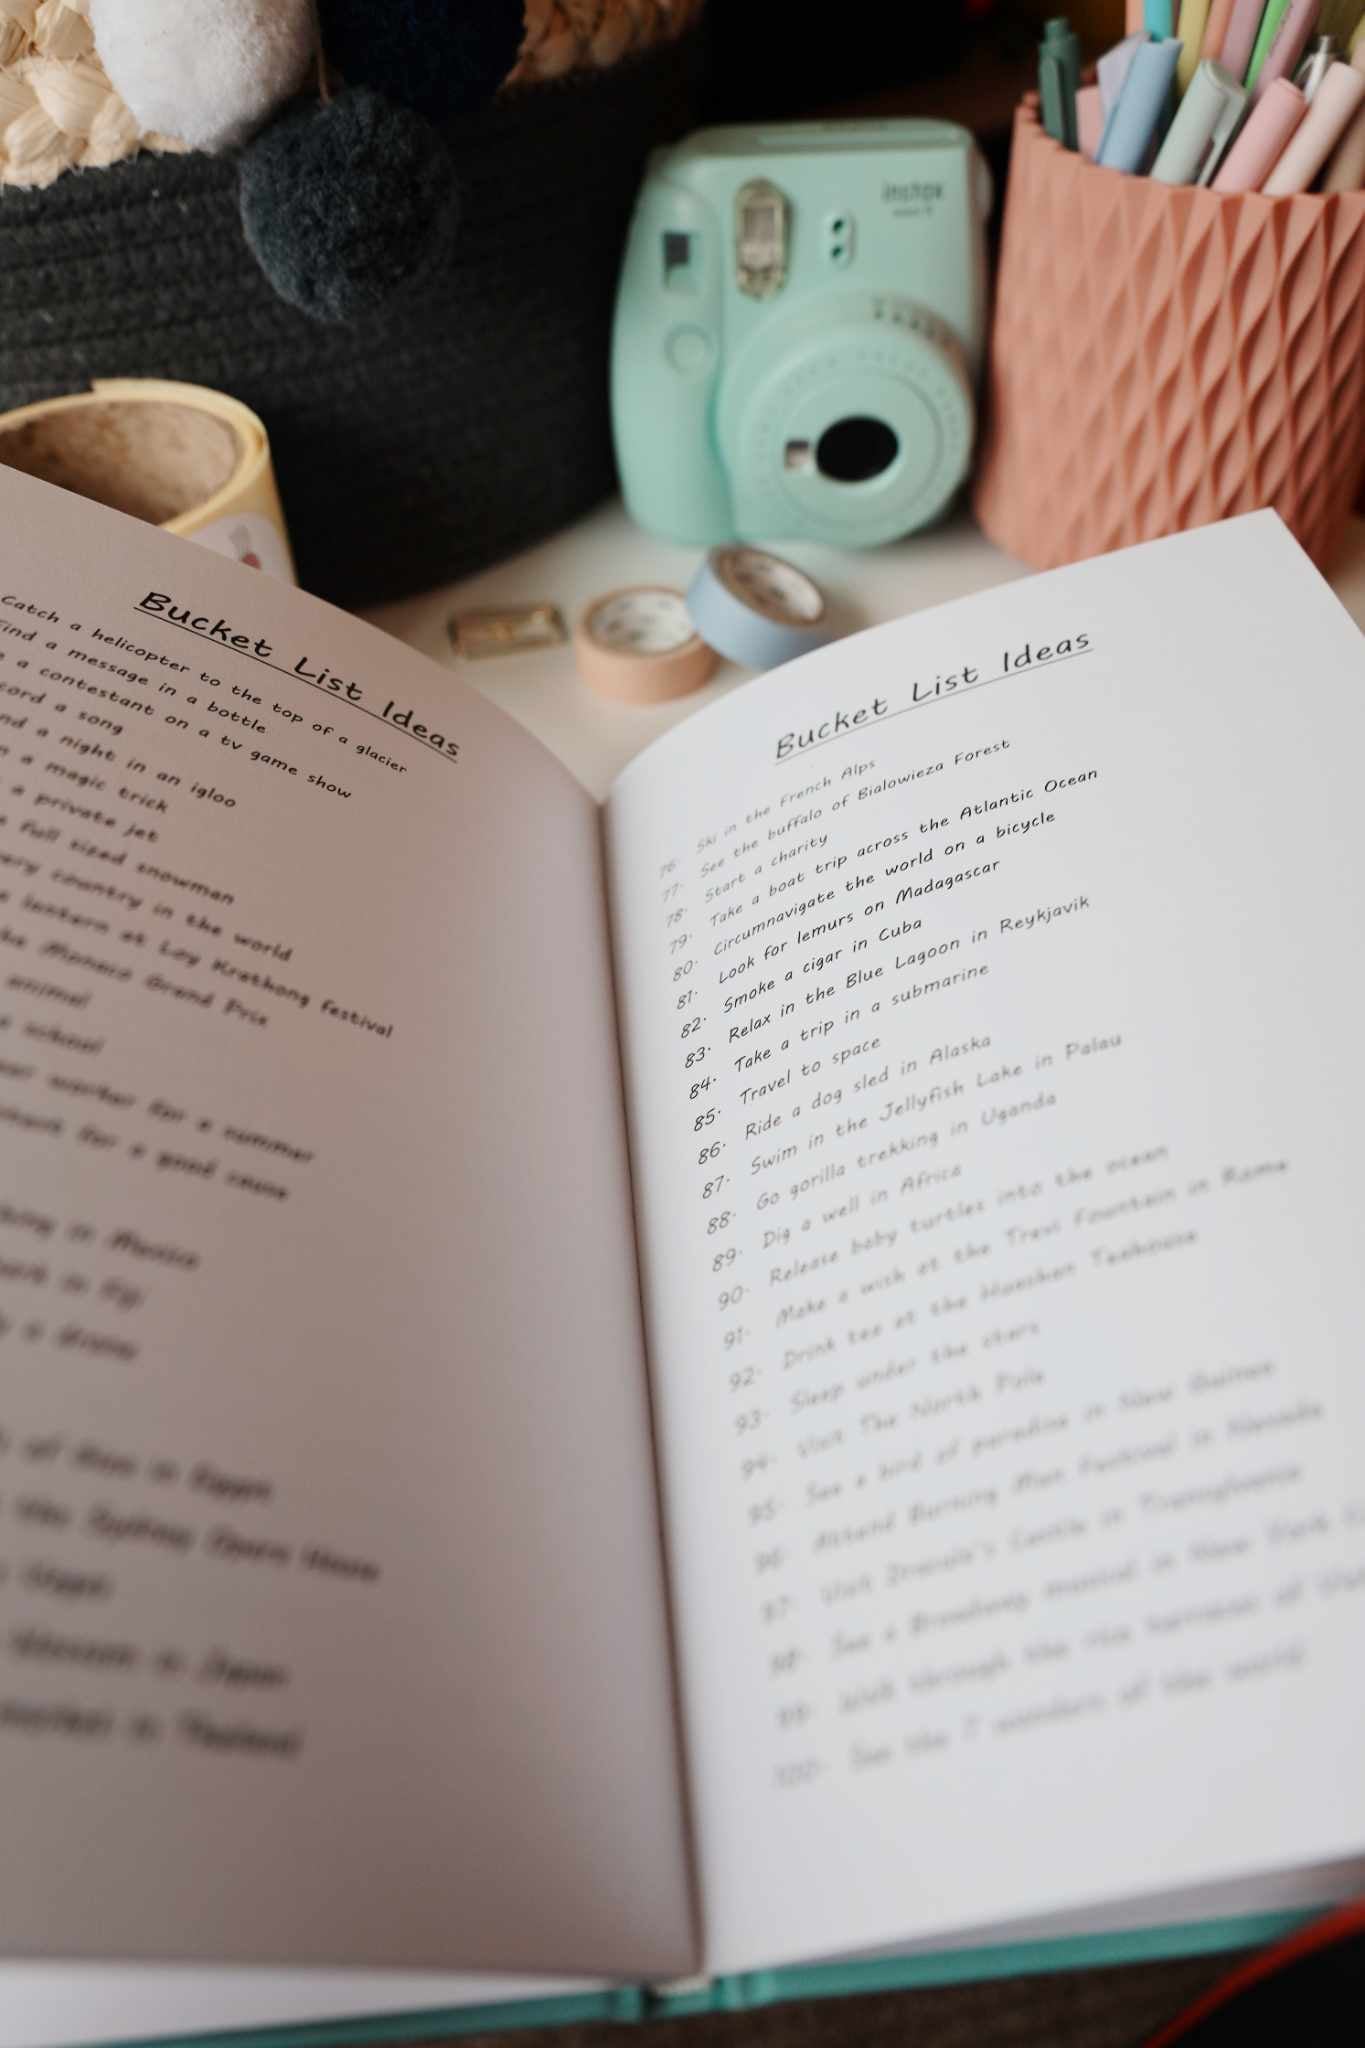 instax
Bucket List Ideas
Catch a helicopter to the top of a glacier
Find a message in a bottle
a contestant on a tv game show
cord a song
nd a night in an igloo
a magic trick
a private jet
full sized snowman
very country in the world
lantern at Loy Krathong festival
the Monaco Grand Prix
animal
school
worker for a summer
for a good cause
in Mexico
in Fiji
a drone
of Kings in Egypt
Sydney Opera House
Blossom in Japan
market in Thailand
Bucket List Ideas
76. Ski in the French Alps
77. See the buffalo of Bialowieza Forest
78. Start a charity
79. Take a boat trip across the Atlantic Ocean
80. Circumnavigate the world on a bicycle
81. Look for lemurs on Madagascar
82. Smoke a cigar in Cuba
83. Relax in the Blue Lagoon in Reykjavik
84. Take a trip in a submarine
85. Travel to space
86. Ride a dog sled in Alaska
87. Swim in the Jellyfish Lake in Palau
88. Go gorilla trekking in Uganda
89. Dig a well in Africa
90. Release baby turtles into the ocean
91. Make a wish at the Trevi Fountain in Rome
92. Drink tea at the Huashan Teahouse
93. Sleep under the stars
94. Visit The North Pole
95. See a bird of paradise in New Guinea
96. Attend Burning Man Festival in Nevada
97. Visit Dracula's Castle in Transylvania
98. See a Broadway musical in New York
99. Walk through the rice terraces of
100. See the 7 wonders of the world